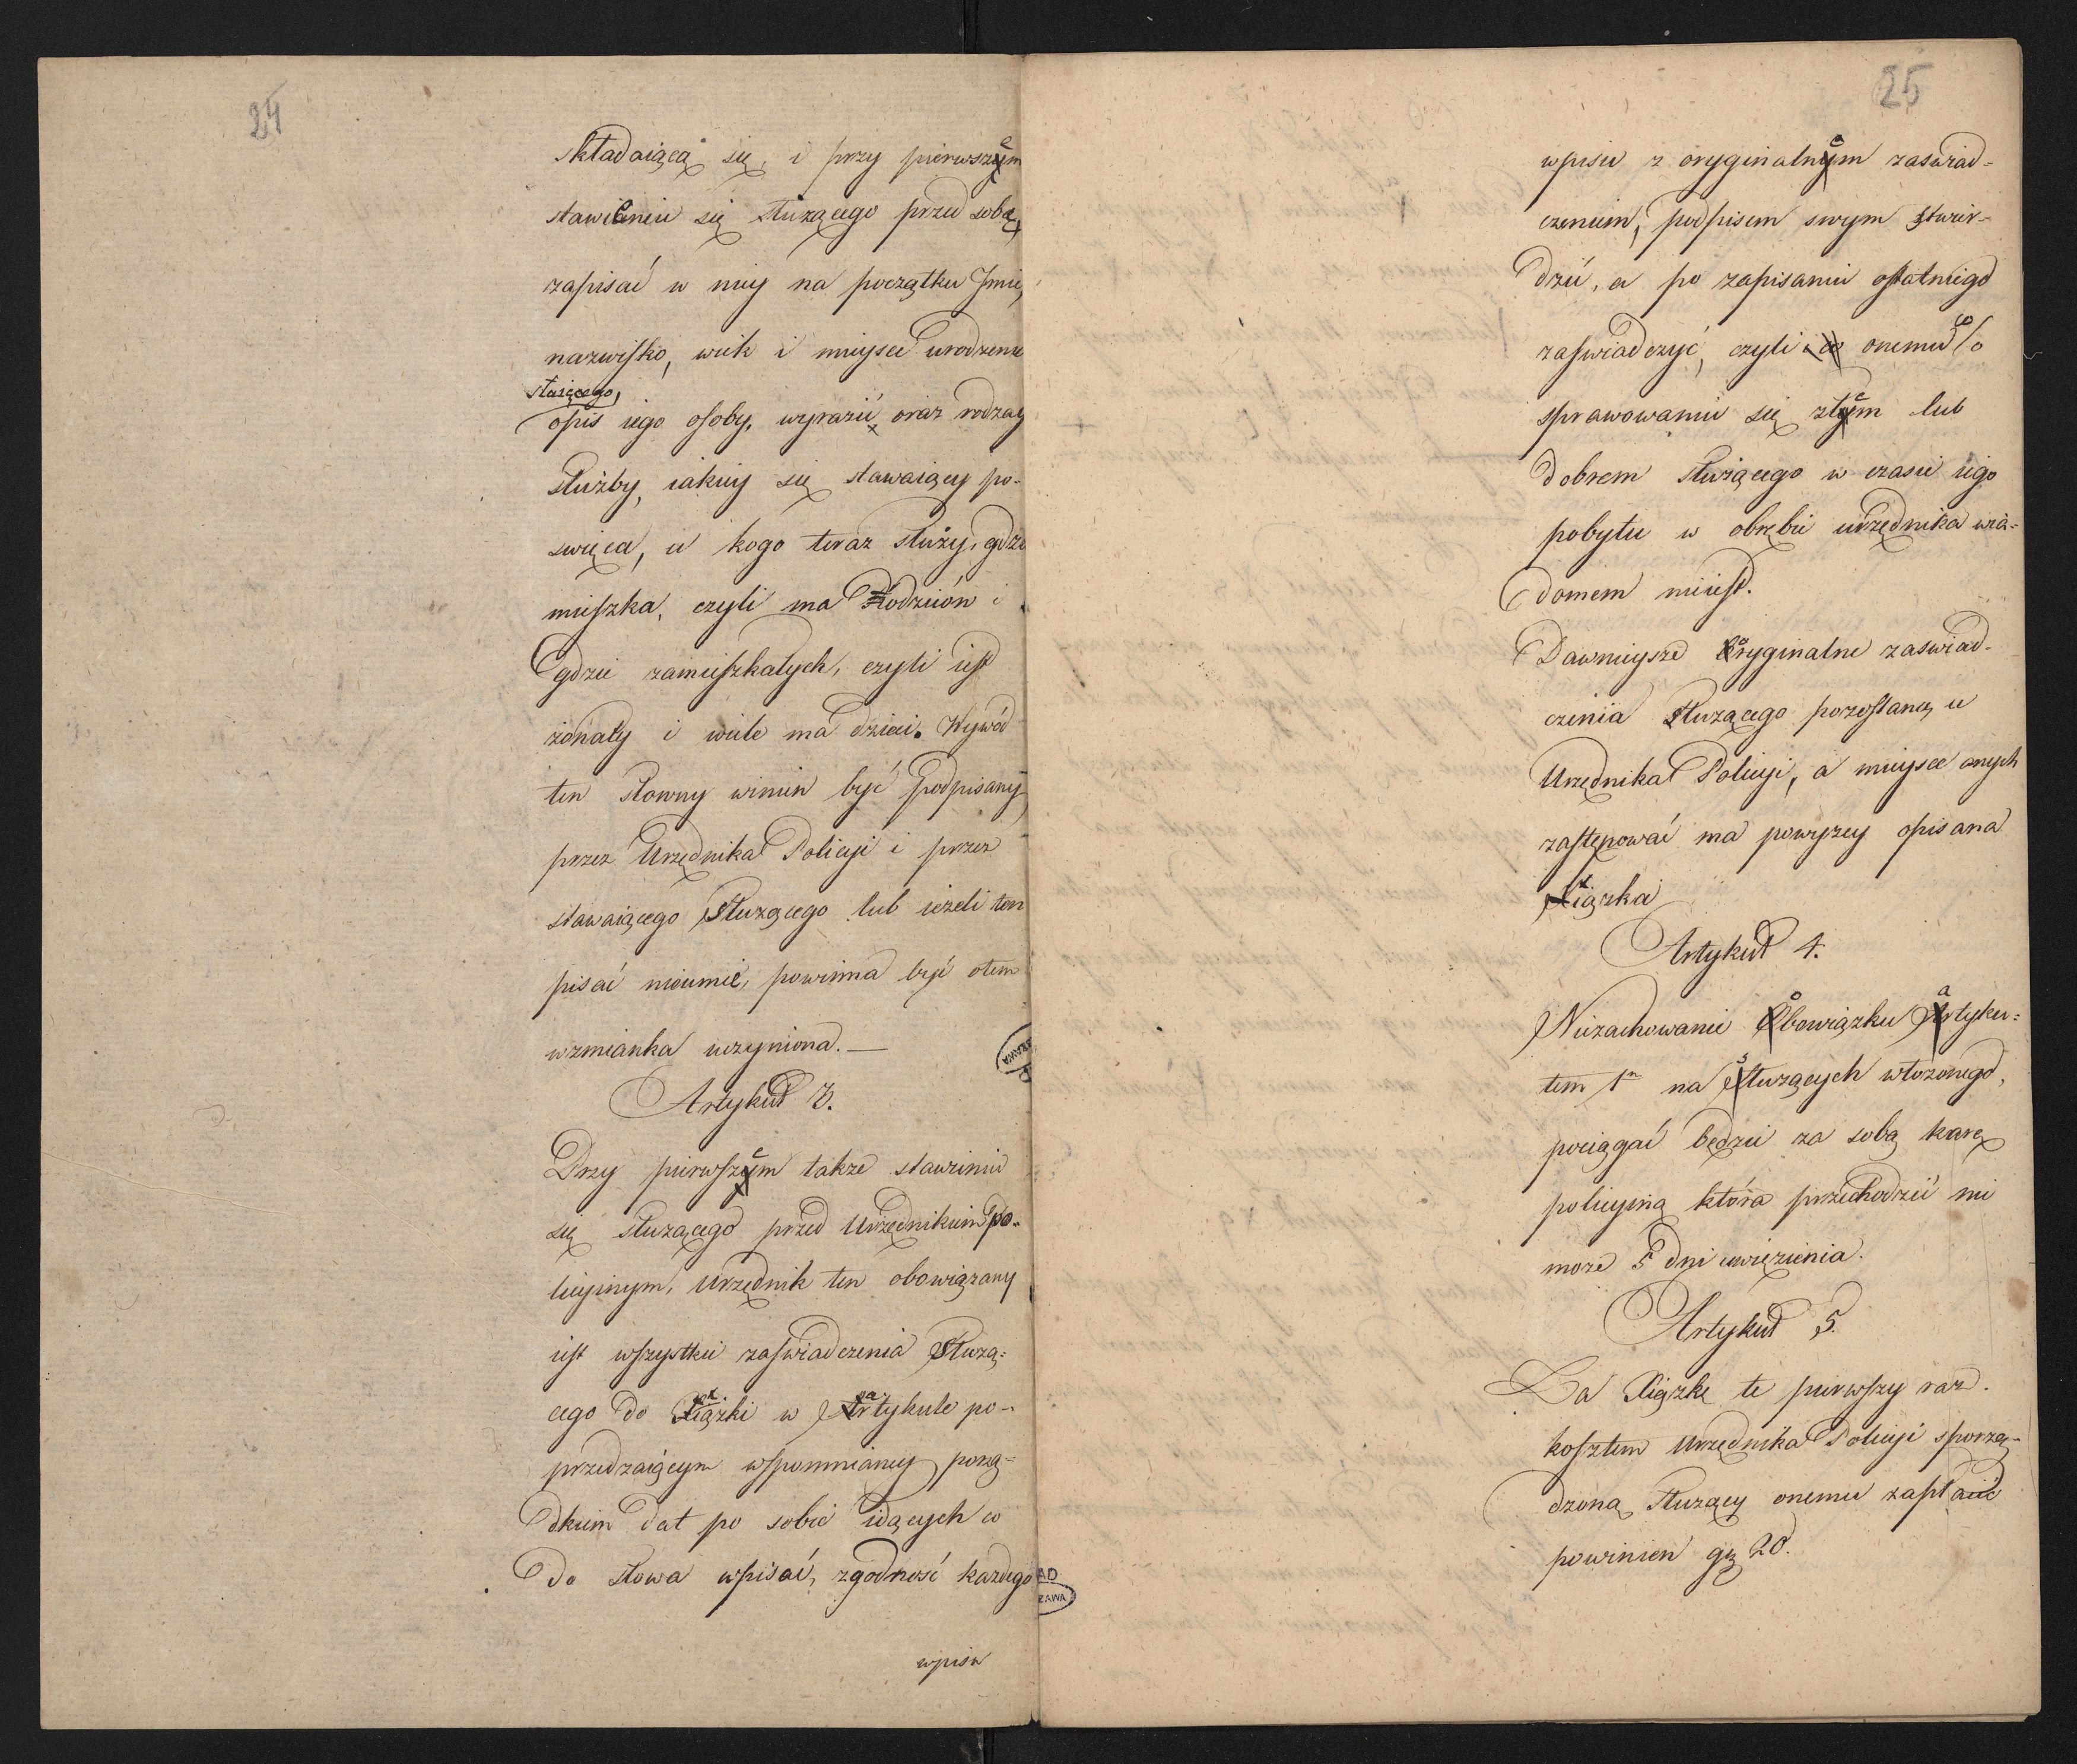 24
składaiącą się, i przy pierwszem
stawieniu się służącego przed sobą,
zapisać w niey na początku Jmie,
nazwisko, wiek i mieysce urodzenia
służącego,
opis iego osoby, wyrazić oraz rodzay
służby, iakiey się stawaiący po-
swięca, u kogo teraz służy, gdzie
mieszka, czyli ma Rodziców i
gdzie zamieszkałych, czyli iest
żonaty i wiele ma dzieci. Wywód
ten słowny winien być podpisany
przez Urzędnika Policyi i przez
stawaiącego Służącego lub ieżeli ten
pisać nieumie, powinna być otem
wzmianka uczyniona. —
Artykuł 3.
Przy pierwszem także stawieniu
się służącego przed Urzędnikiem po-
licyinym, Urzędnik ten obowiązany
iest wszystkie zaświadczenia Służą-
cego do xiążki w artykule po-
przedzaiącym wspomnianey porzą-
dkiem dat po sobie idących co
do słowa wpisać, zgodność każdego
wpisu
25
wpisu z oryginalnem zaswiad-
czeniem, podpisem swym stwier-
dzić, a po zapisaniu ostatniego
zaświadczyć, czyli onemu co o
sprawowaniu się złem lub
dobrem służącego w czasie iego
pobytu w obrębie urzędnika wia-
domem nieiest.
Dawnieysze oryginalne zaswiad-
czenia Służącego pozostaną u
Urzędnika Policyi, a mieysce onych
zastępować ma powyżey opisana
xiążka
Artykuł 4.
Niezachowanie obowiązku artyku-
łem 1m na służących włożonego,
pociągać będzie za sobą karę
policyiną która przechodzić nie
może 5 dni uwięzienia.
Artykuł 5.
Za Xiążkę tę pierwszy raz
kosztem Urzędnika Policyi sporzą-
dzoną Służący onemu zapłacić
powinien gr 20.